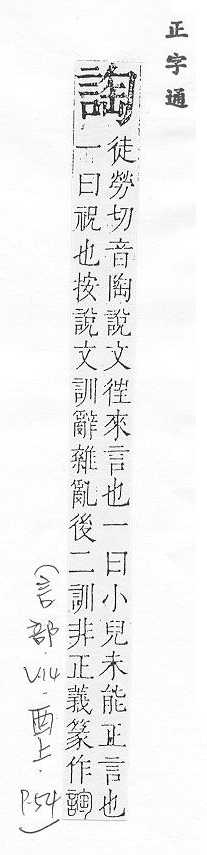 正字通
詾
徒勞切音陶說文徃來言也一曰小兒未能正言也
一曰祝也按說文訓辭雜亂後二訓非正義篆作
(言部·V.14·酉上·P.54)